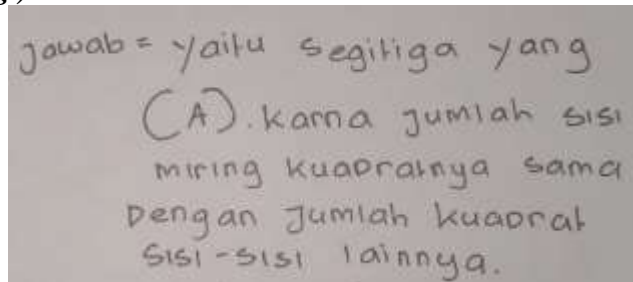 Jawab = yaitu segitiga yang
(A). karna jumlah sisi
miring kuadratnya sama
Dengan Jumlah kuadrat
sisi-sisi lainnya.